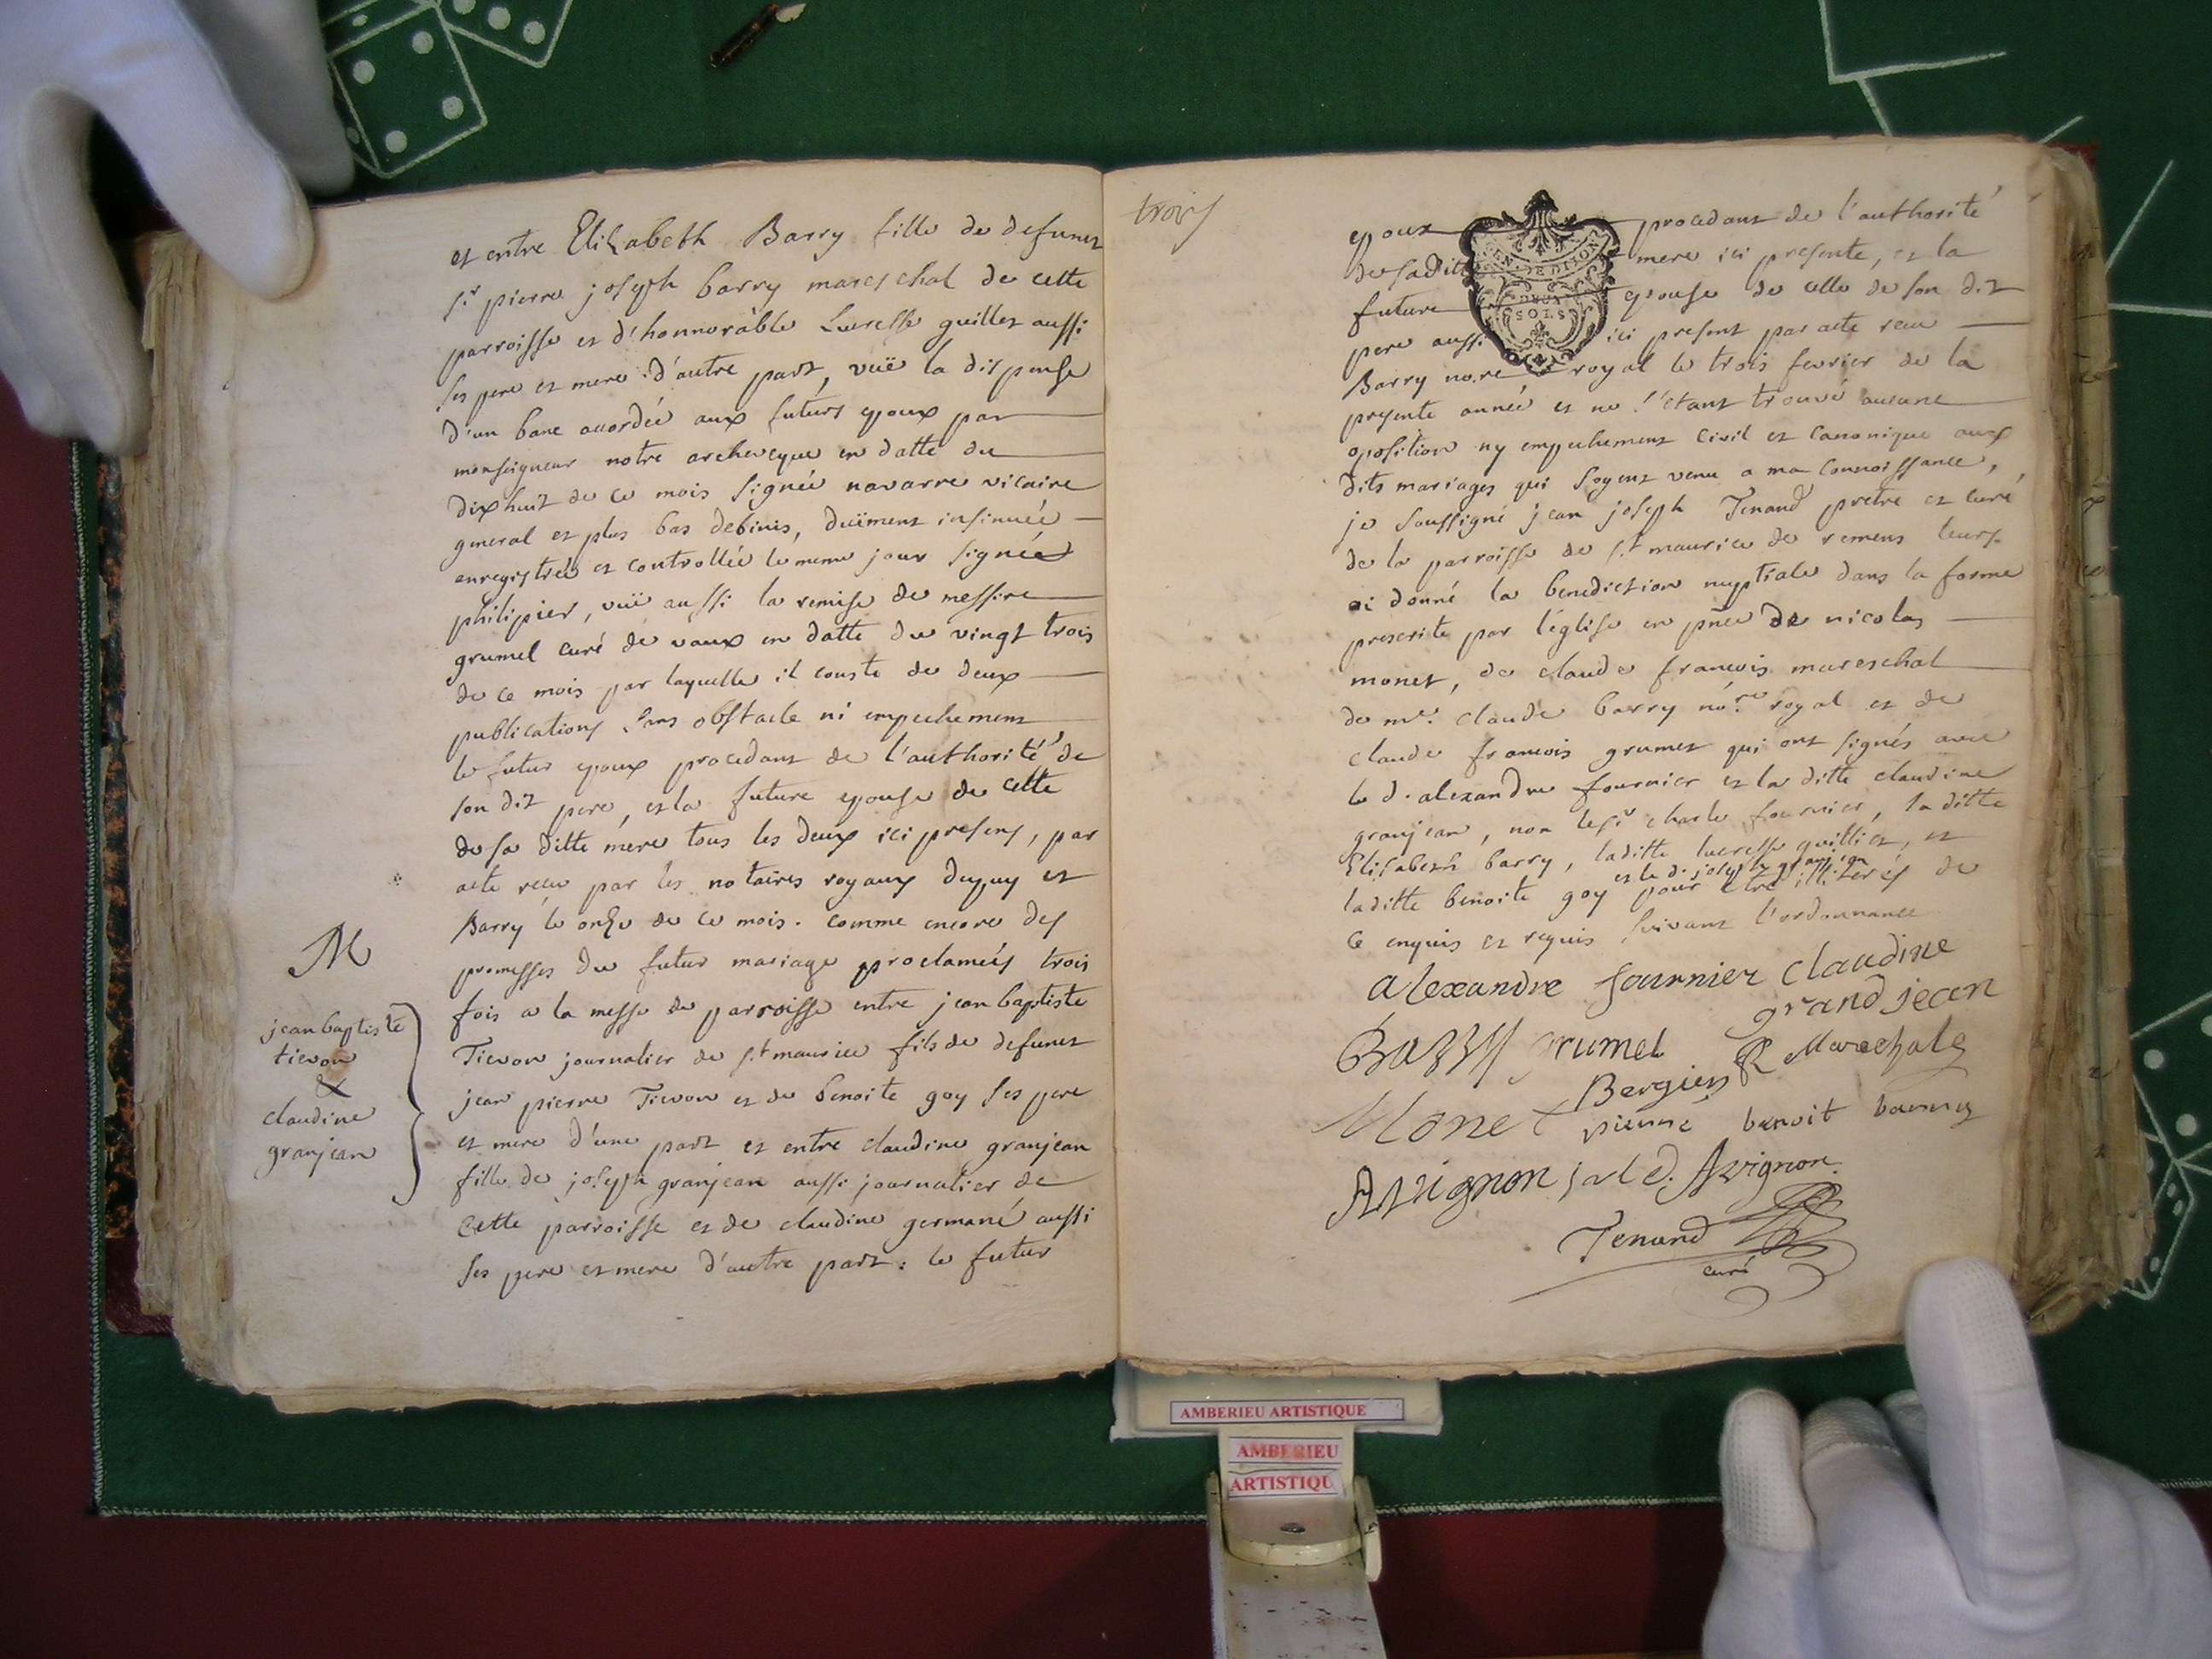 et entre Elizabeth Barry fille de defunct
sr pierre joseph barry mareschal de cette
parroisse et d'honnorable Lucresse guillet aussi
ses pere et mere d'autre part, vuë la dispense
d'un banc accordée aux futurs epoux par
monseigneur notre archeveque en datte du
dixhuit de ce mois signée navarre vicaire
general et plus bas debinis, duëment insinuée
enregistrée et controllée le meme jour signée
philipier, vuë aussi la remise de messire
grumel curé de vaux en datte du vingt trois
de ce mois par laquelle il conste de deux
publications sans obstacle ni empechement
le futur epoux procedant de l'authorité de
son dit pere, et la future epouse de celle
de sa ditte mere tous les deux ici presens, par
acte recu par les notaires royaux dupuy et
Barry le onze de ce mois. comme encore des
M
promesses du futur mariage proclamées trois
fois a la messe de parroisse entre jean baptiste
Tievon journalier de st maurice fils de defunct
jean pierre Tievon et de benoite goy ses pere
et mere d'une part et entre claudine granjean
fille de joseph granjean aussi journalier de
cette parroisse et de claudine germané aussi
ses pere et mere d'autre part: le futur
jean baptiste
tievon
&
claudine
granjean
trois
GEN. DE DIJON
DEUX
SOLS
epoux procedant de l'authorité
de sa ditte mere ici presente, et la
future epouse de celle de son dit
pere aussi ici present par acte recu
Barry no.re royal le trois fevrier de la
presente année et ne s'etant trouvé aucune
oposition ny empechement civil et canonique aux
dits mariages qui soyent venu a ma connoissance,
je soussigné jean joseph Tenand pretre et curé
de la parroisse de st maurice de remens leurs
ai donné la benediction nuptiale dans la forme
prescrite par l'église en pnce de nicolas
monet, de claude francois mareschal
de me. claude barry nore royal et de
claude francois grumet qui ont signés avec
le d. alexandre fournier et la ditte claudine
granjean, non le sr charle fournier, la ditte
Elisabeth barry, laditte lucresse guillet, et
laditte benoite goy et le d. joseph granjean pour etre illiterés de
ce enquis et requis suivant l'ordonnance
alexandre fournier claudine
grand jean
Barry grumel Marechale
Bergier
Monet pierre benoit
Avignon Avignon
Tenand
curé
AMBERIEU ARTISTIQUE
AMBERIEU
ARTISTIQU